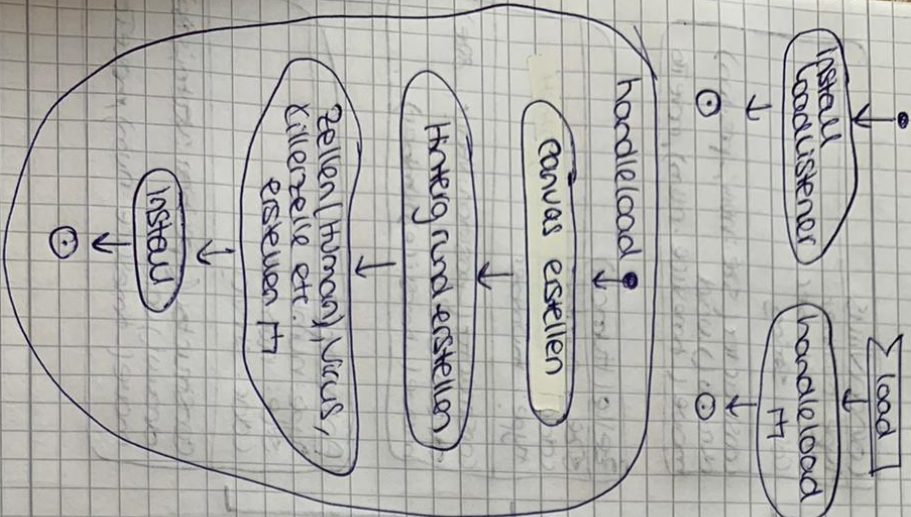 Install
loadListener
load
handleload
handleload
canvas erstellen
Hintergrund erstellen
Zellen (Human), Virus,
Killerzelle etc.
erstellen
Install